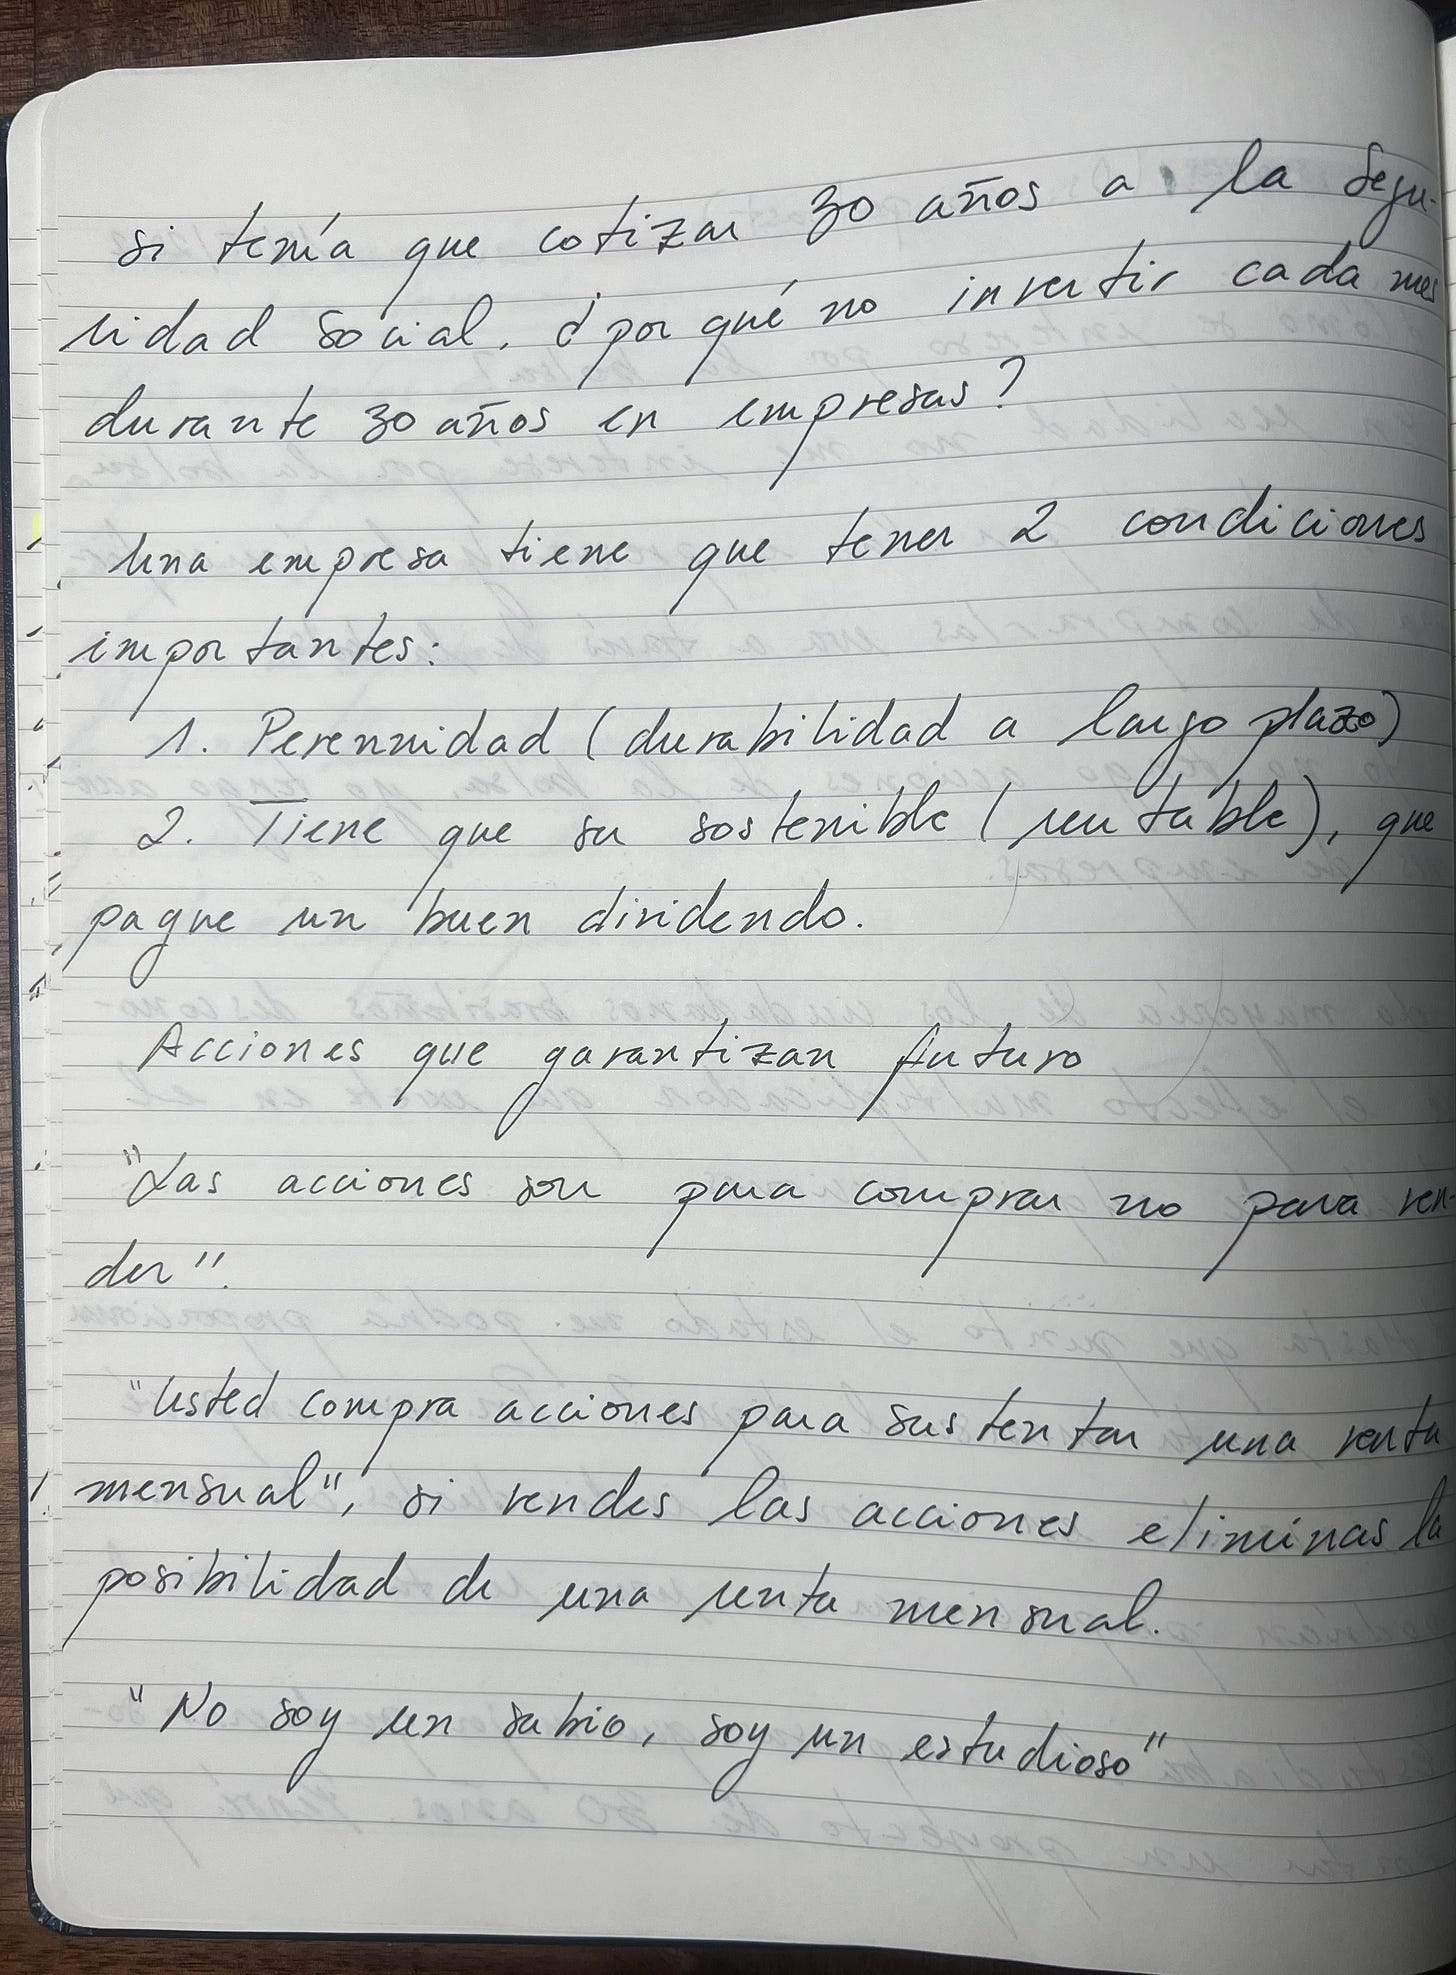 si tenía que cotizar 30 años a la Segu-
ridad Social, ¿por qué no invertir cada mes
durante 30 años en empresas?
Una empresa tiene que tener 2 condiciones
importantes:
1. Perennidad (durabilidad a largo plazo)
2. Tiene que ser sostenible (rentable), que
pague un buen dividendo.
Acciones que garantizan futuro
"Las acciones son para comprar no para ven-
der".
"Usted compra acciones para sustentar una renta
mensual", si vendes las acciones eliminas la
posibilidad de una renta mensual.
"No soy un sabio, soy un estudioso"